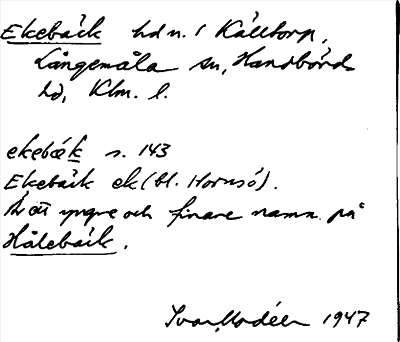 Ekebäck hdn. i Källtorp,
Långemåla sn, Handbörds
hd, Klm. l.
ekebæk s. 143
Ekebäck ek (bl. Hornsö).
Är ett yngre och finare namn på
Hålebäck.
Ivar Modéer 1947